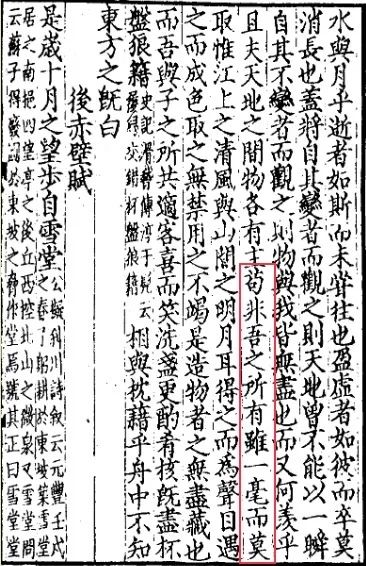 水與月乎逝者如斯而未甞往也盈虛者如彼而卒莫
消長也蓋將自其變者而觀之則天地曾不能以一瞬
自其不變者而觀之則物與我皆無盡也而又何羨乎
且夫天地之間物各有主苟非吾之所有雖一毫而莫
取惟江上之清風與山間之明月耳得之而為聲目遇
之而成色取之無禁用之不竭是造物者之無盡藏也
而吾與子之所共適客喜而笑洗盞更酌肴核旣盡杯
盤狼籍史記滑稽傳淳于髡云履舄交錯杯盤狼籍相與枕藉乎舟中不知
東方之旣白
後赤壁賦
是歲十月之望步自雪堂公擬斜川詩叙云元豐壬戌之春予躬耕於東坡築雪堂
居之南挹四望亭之後丘西控北山之微泉又雪堂問
云蘇子得廢園於東坡之脅作堂焉號其正曰雪堂堂